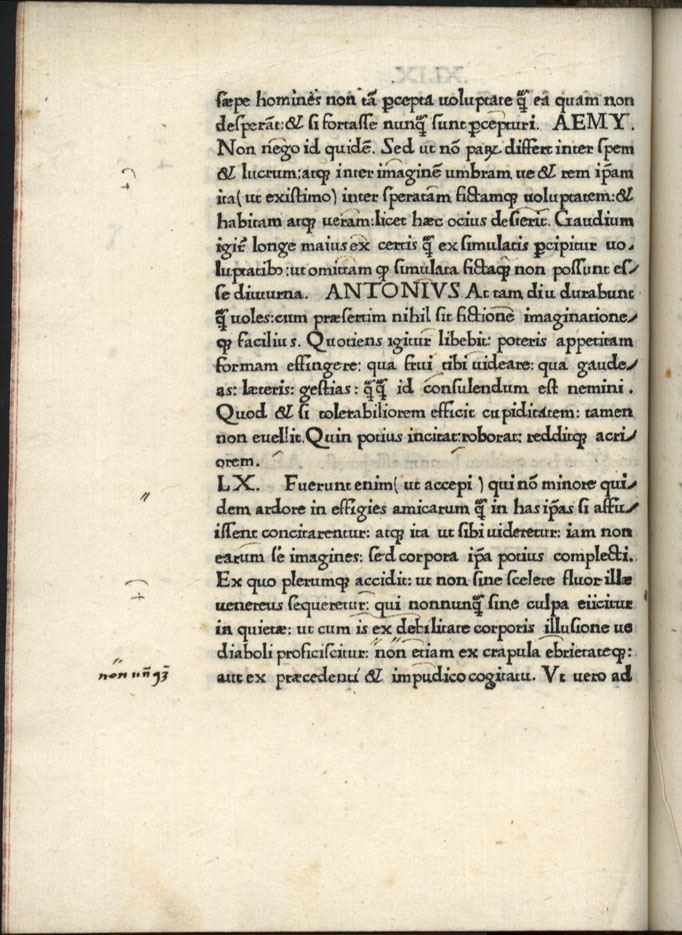 sæpe homines non tã ꝑcepta uoluptate q̃ȝ ea quam non
desperãt:& si fortasse nunq̃ȝ sunt ꝑcepturi. AEMY.
Non nego id quidẽ. Sed ut nõ paꝝ differt inter spem
& lucrum:atqȝ inter imaginẽ umbram ue & rem ip̃am
ita( ut existimo) inter speratam fictamqȝ uoluptatem:&
habitam atqȝ ueram:licet hæc ocius desierit. Gaudium
igit̃ longe maius ex certis q̃ȝ ex simulatis ꝑcipitur uo⸗
luptatibꝰ:ut omittam qȝ simulata fictaqȝ non possunt es⸗
se diuturna. ANTONIVS At tam diu durabunt
q̃ȝ uoles:cum præsertim nihil sit fictione imaginatione⸗
qȝ facilius. Quotiens igitur libebit: poteris appetitam
formam effingere: qua frui tibi uideare: qua gaude⸗
as: læteris: gestias: q̃ȝq̃ȝ id consulendum est nemini.
Quod & si tolerabiliorem efficit cupiditatem: tamen
non euellit.Quin potius incitat:roborat: redditqȝ acri⸗
orem.
LX. Fuerunt enim( ut accepi) qui nõ minore qui⸗
dem ardore in effigies amicarum q̃ȝ in has ip̃as si affu⸗
issent concitarentur: atqȝ ita ut sibi uideretur: iam non
earum se imagines: sed corpora ip̃a potius complecti.
Ex quo plerumqȝ accidit: ut non sine scelere fluor illæ
uenereus sequeretur: qui nonnunq̃ȝ sine culpa eiicitur
in quietæ: ut cum is ex debilitate corporis illusione ue
diaboli proficiscitur: non etiam ex crapula ebrietateqȝ:
aut ex præcedenti & impudico cogitatu. Vt uero ad